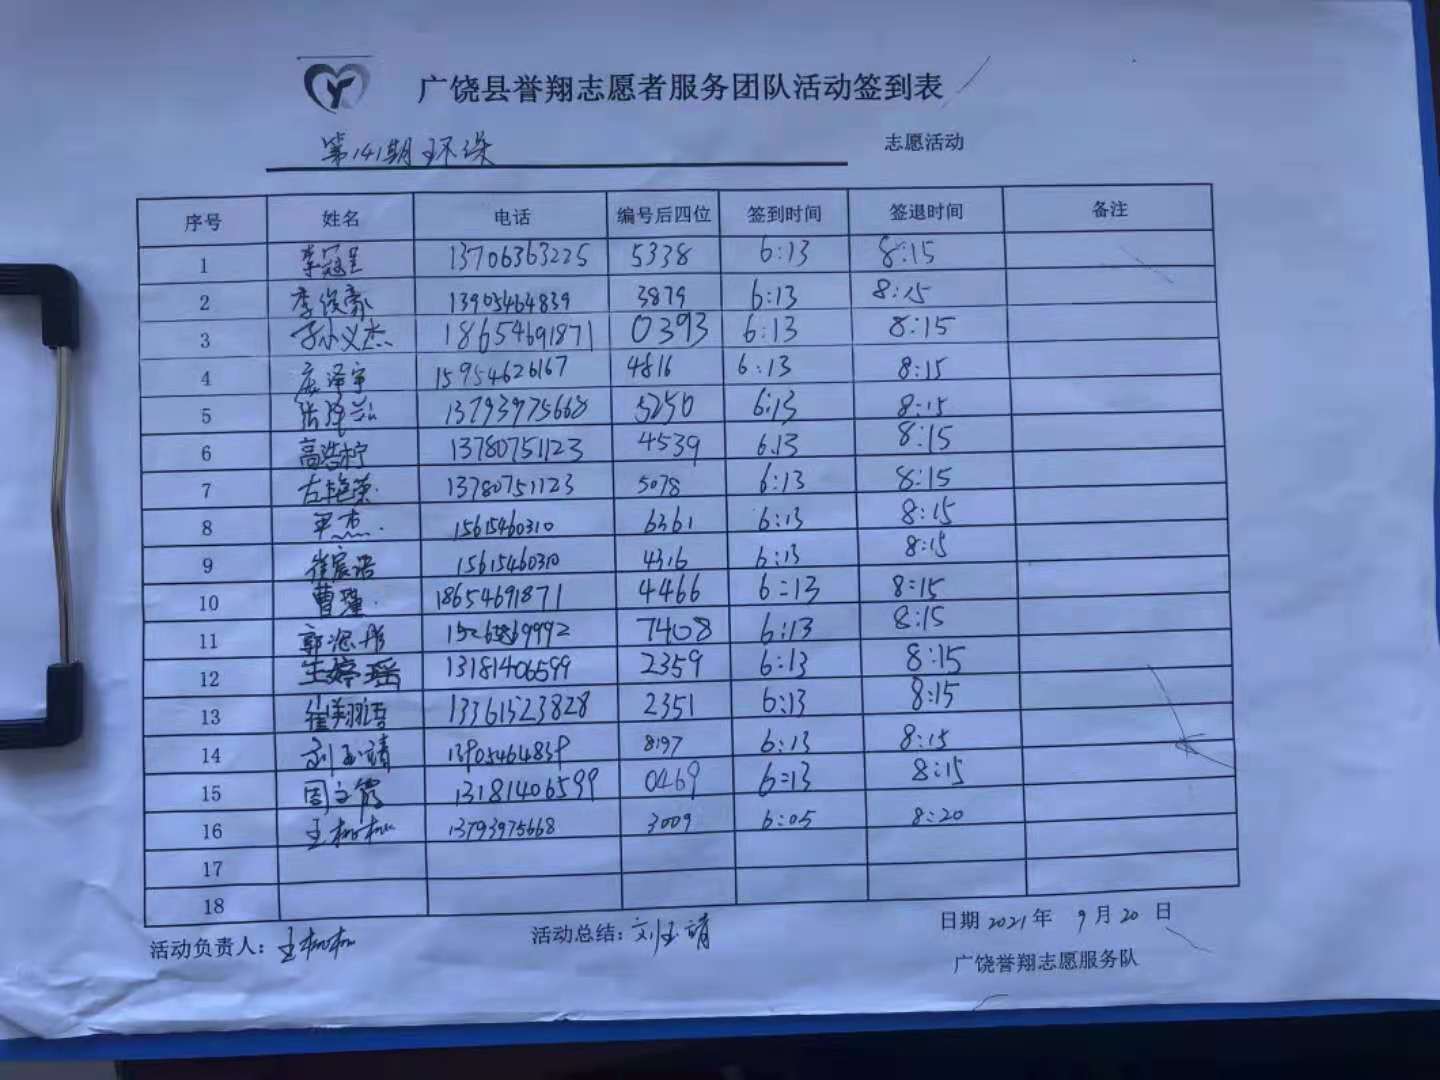 广饶县誉翔志愿者服务团队活动签到表
第141期环保 志愿活动
序号 姓名 电话 编号后四位 签到时间 签退时间 备注
1 李冠呈 13706363225 5338 6:13 8:15
2 李俊豪 13905464839 3879 6:13 8:15
3 孙义杰 18654691871 0393 6:13 8:15
4 泽宇 15954626167 4816 6:13 8:15
5 13793975668 5250 6:13 8:15
6 高浩柠 13780751123 4539 6.13 8:15
7 左艳荣 13780751123 5078 6:13 8:15
8 杰 15615460310 6361 6:13 8:15
9 崔宸语 15615460310 4316 6:13 8:15
10 曹瑾 18654691871 4466 6:13 8:15
11 郭 7408 6:13 8:15
12 王婷瑶 13181406599 2359 6:13 8:15
13 崔翔语 13361523828 2351 6:13 8:15
14 刘玉靖 13905464839 8197 6:13 8:15
15 周文霞 13181406599 0469 6:13 8:15
16 王彬彬 13793975668 3009 6:05 8:20
17
18
活动负责人: 王彬彬 活动总结: 刘玉靖 日期 2021年 9月20日
广饶誉翔志愿服务队